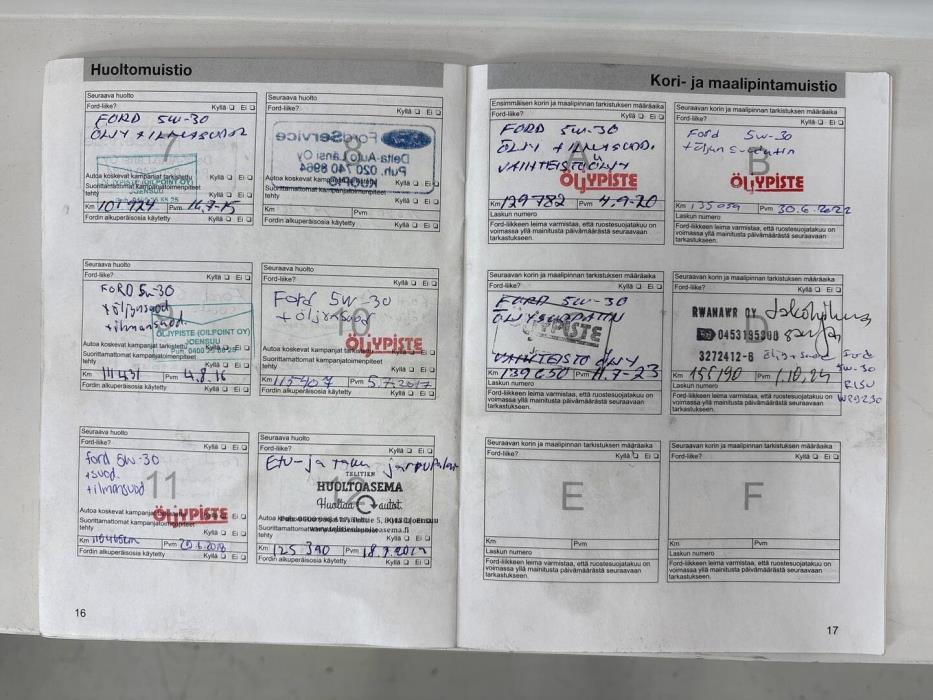 Huoltomuistio
Seuraava huolto
Ford-liike? Kyllä ❏ Ei ❏
FORD 5W-30
ÖLJY + ILMASUOD
7
ÖLJYPISTE (OILPOINT OY)
JOENSUU
Autoa koskevat kampanjat tarkistettu Kyllä ❏ Ei ❏
Suorittamattomat kampanjatoimenpiteet
tehty Kyllä ❏ Ei ❏
Km Pvm 16.7-15
Fordin alkuperäisosia käytetty Kyllä ❏ Ei ❏
Seuraava huolto
Ford-liike? Kyllä ❏ Ei ❏
8
FordService
Delta-Auto Länsi Oy
Puh. 020 740 8964
KUOPIO
Km Pvm
Fordin alkuperäisosia käytetty Kyllä ❏ Ei ❏
Seuraava huolto
Ford-liike? Kyllä ❏ Ei ❏
FORD 5W-30
+öljynsuod
+ilmansuod.
9
ÖLJYPISTE (OILPOINT OY)
JOENSUU
Autoa koskevat kampanjat tarkistettu Kyllä ❏ Ei ❏
Suorittamattomat kampanjatoimenpiteet
tehty Kyllä ❏ Ei ❏
Km 111431 Pvm 4.8.16
Fordin alkuperäisosia käytetty Kyllä ❏ Ei ❏
Seuraava huolto
Ford-liike? Kyllä ❏ Ei ❏
Ford 5W-30
+ öljynsuod
10
ÖLJYPISTE
Autoa koskevat kampanjat tarkistettu Kyllä ❏ Ei ❏
Suorittamattomat kampanjatoimenpiteet
tehty Kyllä ❏ Ei ❏
Km 115407 Pvm 5.7.2017
Fordin alkuperäisosia käytetty Kyllä ❏ Ei ❏
Seuraava huolto
Ford-liike? Kyllä ❏ Ei ❏
ford 5w-30
+suod.
+ilmansuod
11
ÖLJYPISTE
Autoa koskevat kampanjat tarkistettu Kyllä ❏ Ei ❏
Suorittamattomat kampanjatoimenpiteet
tehty Kyllä ❏ Ei ❏
Km Pvm
Fordin alkuperäisosia käytetty Kyllä ❏ Ei ❏
Seuraava huolto
Ford-liike? Kyllä ❏ Ei ❏
Etu- ja taka jarrupalat
12
TELITIEN
HUOLTOASEMA
Huoltaa autot.
Km 125 390 Pvm
Fordin alkuperäisosia käytetty Kyllä ❏ Ei ❏
16
Kori- ja maalipintamuistio
Ensimmäisen korin ja maalipinnan tarkistuksen määräaika
Ford-liike? Kyllä ❏ Ei ❏
FORD 5W-30
ÖLJY + ILMASUOD.
VAIHTEISTOÖLJY
A
ÖLJYPISTE
Km 129782 Pvm 4.9-20
Laskun numero
Ford-liikkeen leima varmistaa, että ruostesuojatakuu on
voimassa yllä mainitusta päivämäärästä seuraavaan
tarkastukseen.
Seuraavan korin ja maalipinnan tarkistuksen määräaika
Ford-liike? Kyllä ❏ Ei ❏
Ford 5w-30
+ öljynsuodatin
B
ÖLJYPISTE
Km 135059 Pvm 30.6.2022
Laskun numero
Ford-liikkeen leima varmistaa, että ruostesuojatakuu on
voimassa yllä mainitusta päivämäärästä seuraavaan
tarkastukseen.
Seuraavan korin ja maalipinnan tarkistuksen määräaika
Ford-liike? Kyllä ❏ Ei ❏
FORD 5W-30
ÖLJYSUODATIN
ÖLJYPISTE
VAIHTEISTO ÖLJY
Km 139650 Pvm 11.7-23
Laskun numero
Ford-liikkeen leima varmistaa, että ruostesuojatakuu on
voimassa yllä mainitusta päivämäärästä seuraavaan
tarkastukseen.
Seuraavan korin ja maalipinnan tarkistuksen määräaika
Ford-liike? Kyllä ❏ Ei ❏
RWANAWR OY
0453195300
3272412-6
Ford
5w-30
Km 155190 Pvm 1.10.24
Laskun numero
Ford-liikkeen leima varmistaa, että ruostesuojatakuu on
voimassa yllä mainitusta päivämäärästä seuraavaan
tarkastukseen.
Seuraavan korin ja maalipinnan tarkistuksen määräaika
Ford-liike? Kyllä ❏ Ei ❏
E
Km Pvm
Laskun numero
Ford-liikkeen leima varmistaa, että ruostesuojatakuu on
voimassa yllä mainitusta päivämäärästä seuraavaan
tarkastukseen.
Seuraavan korin ja maalipinnan tarkistuksen määräaika
Ford-liike? Kyllä ❏ Ei ❏
F
Km Pvm
Laskun numero
Ford-liikkeen leima varmistaa, että ruostesuojatakuu on
voimassa yllä mainitusta päivämäärästä seuraavaan
tarkastukseen.
17